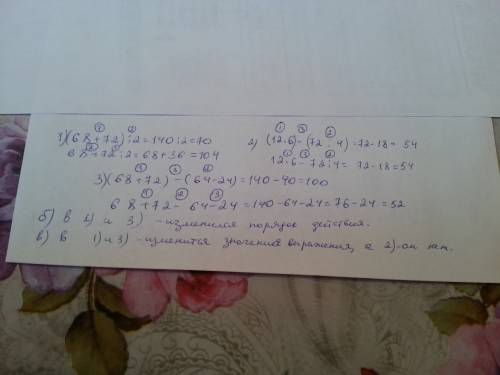 1) (68+72):2=140:2=70
68+72:2=68+36=104
2) (12·6)-(72:4)=72-18=54
12·6-72:4=72-18=54
3) (68+72)-(64-24)=140-40=100
68+72-64-24=140-64-24=76-24=52
б) в 1) и 3) -изменился порядок действия.
в) В 1) и 3) -изменится значения выражения, а 2)-ом нет.